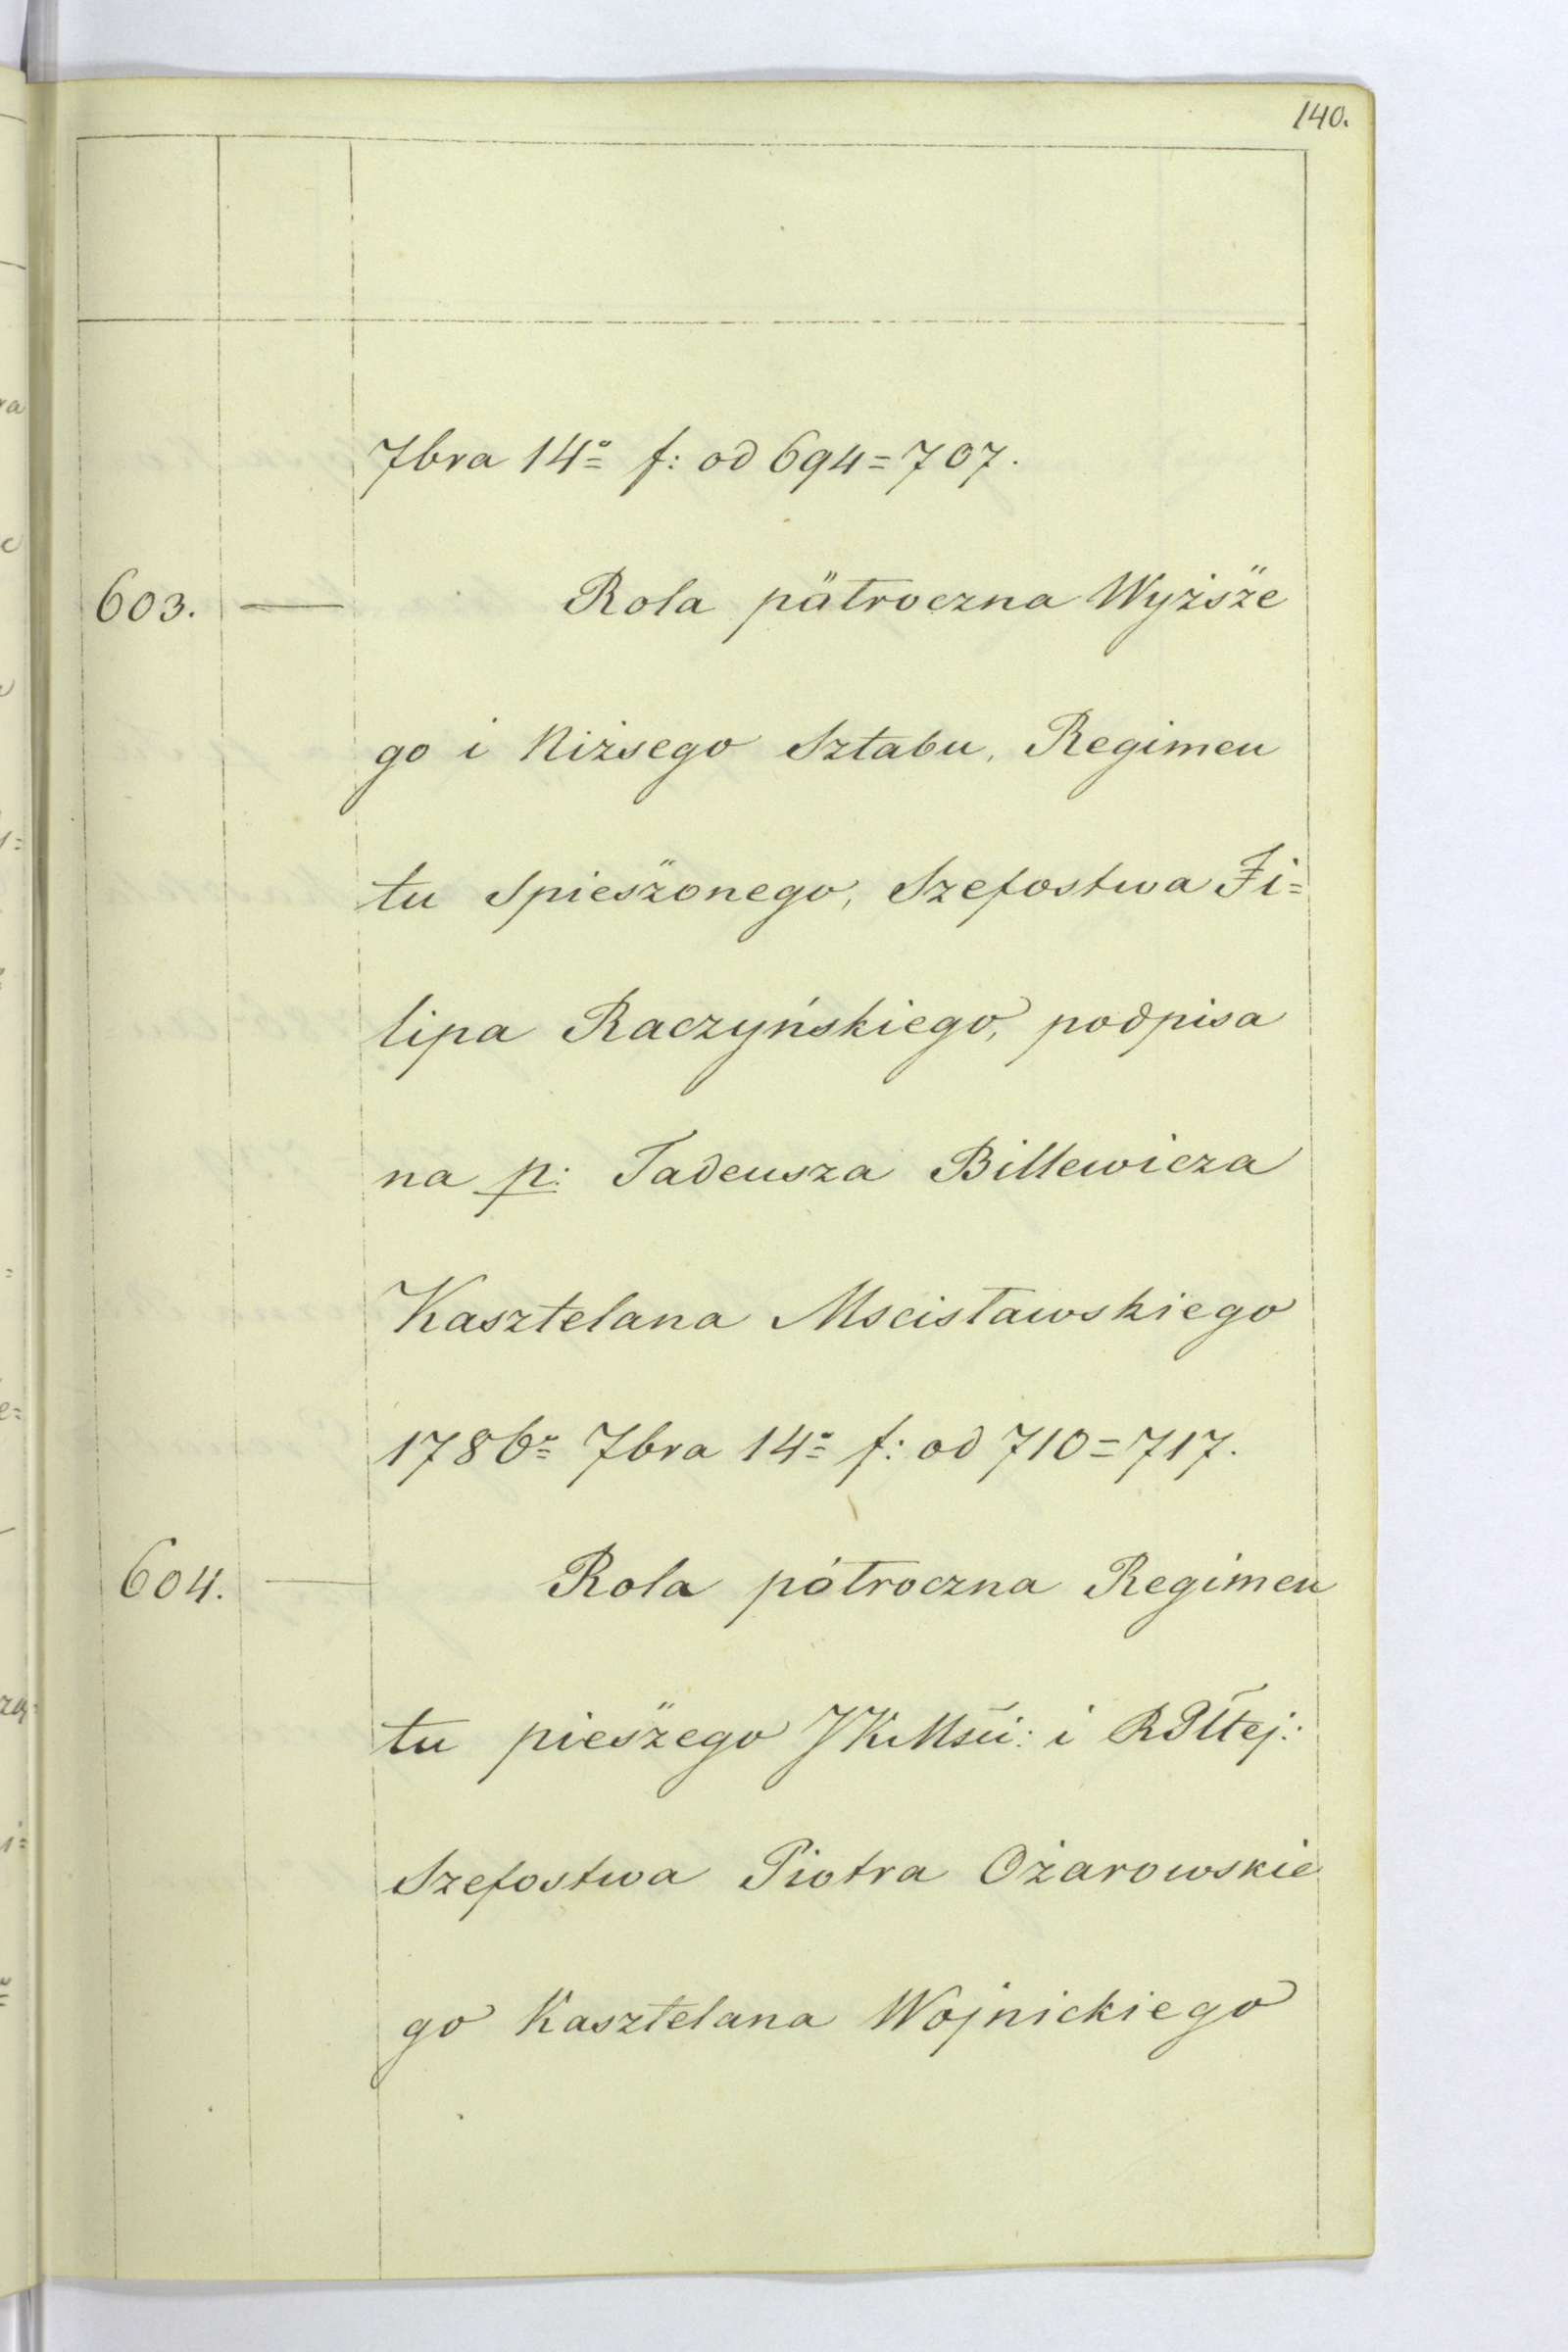 140.
7bra 14º f: od 694=707.
603. — Rola pätroczna Wyżs̈ze
go i Niżsego Sztabu, Regimen
tu Spies̈zonego, Szefostwa Fi=
lipa Raczyńskiego, podpisa
na p: Tadeusza Billewicza
Kasztelana Mscisławskiego
1786º 7bra 14º f: od 710=717.
604. — Rola półroczna Regimen
tu pies̈zego JKMsci: i RPltej:
Szefostwa Piotra Ożarowskie
go Kasztelana Wojnickiego